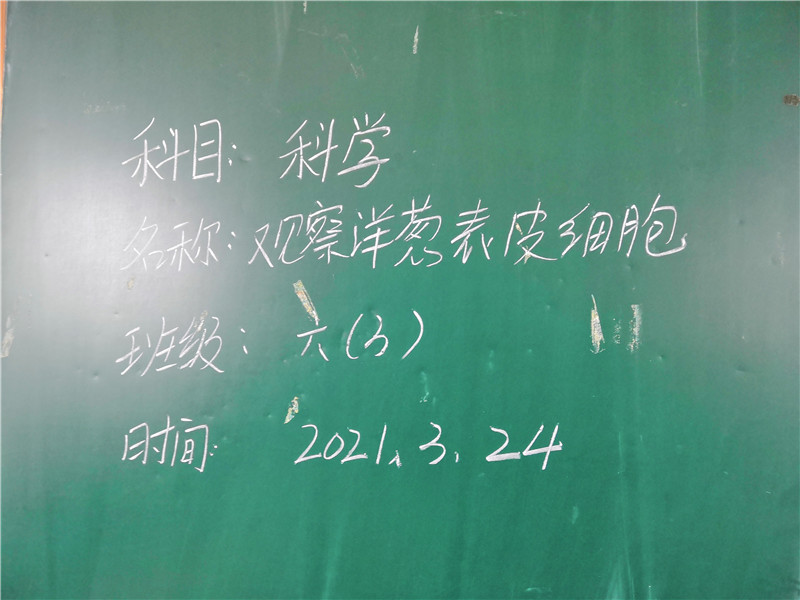 科目: 科学
名称: 观察洋葱表皮细胞
班级: 六(3)
时间: 2021.3.24